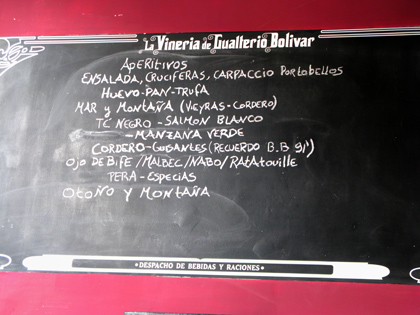 La Vineria de Gualterio Bolivar
APERITIVOS
ENSALADA, CRUCIFERAS, CARPACCIO PORTOBELLOS
HUEVO-PAN-TRUFA
MAR y MONTAÑA (VIEYRAS-CORDERO)
TE NEGRO-SALMON BLANCO
-MANZANA VERDE
CORDERO-GUISANTES (RECUERDO B.B 91')
OJO DE BIFE/MALBEC/NABO/RATATOUILLE
PERA-ESPECIAS
OTOÑO Y MONTAÑA
•DESPACHO DE BEBIDAS Y RACIONES•